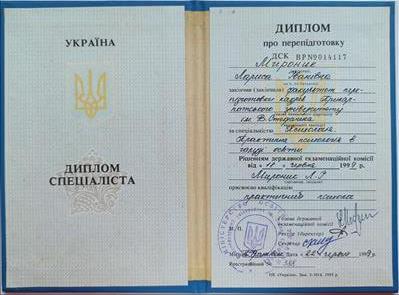 УКРАЇНА
ДИПЛОМ
СПЕЦІАЛІСТА
ДИПЛОМ
про перепідготовку
ДСК ВРN9014117
Мироник
Лариса Іванівна
закінчив (закінчила) факультет пере-
підготовки кадрів Прикар-
патського університету
ім. В. Стефаника
за спеціальністю Психологія.
Практична психологія в
галузі освіти
Рішенням державної екзаменаційної комісії
від „18" червня 199 р.
Мироник Л.
присвоєно кваліфікацію
практичний психолог
Голова державної
екзаменаційної комісії
М. П.
Ректор (Директор)
Секретар
Дата „22" червня 199 р.
Реєстраційний №